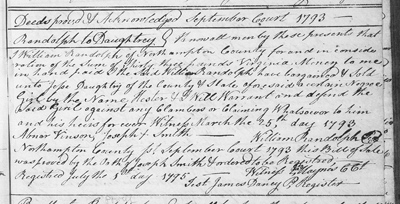 Deeds prov'd & Acknowledged September Court 1793
Randolph to Daughtrey } Know all men by these presents that
I William Randolph of Northampton County for and in conside
ration of the Sum of thirty three pounds Virginia Money to me
in hand paid I the said William Randolph have bargained & Sold
unto Jesse Daughtry of the County & State aforesaid a certain Negro
Girl by the Name Hester & I Will Warrant and defend the
said girl against any person or Claiming Whatsoever to him
and his heirs for ever Witness March the 25th day 1793
Abner Vinson, Joseph Smith William Randolph
Northampton County Ss September Court 1793 this Bill of Sale
was proved by the Oath of Joseph Smith & ordered to be Registred
Registred July the day 1795 Witness Haynes C Ct
Test James Dancy P. Register